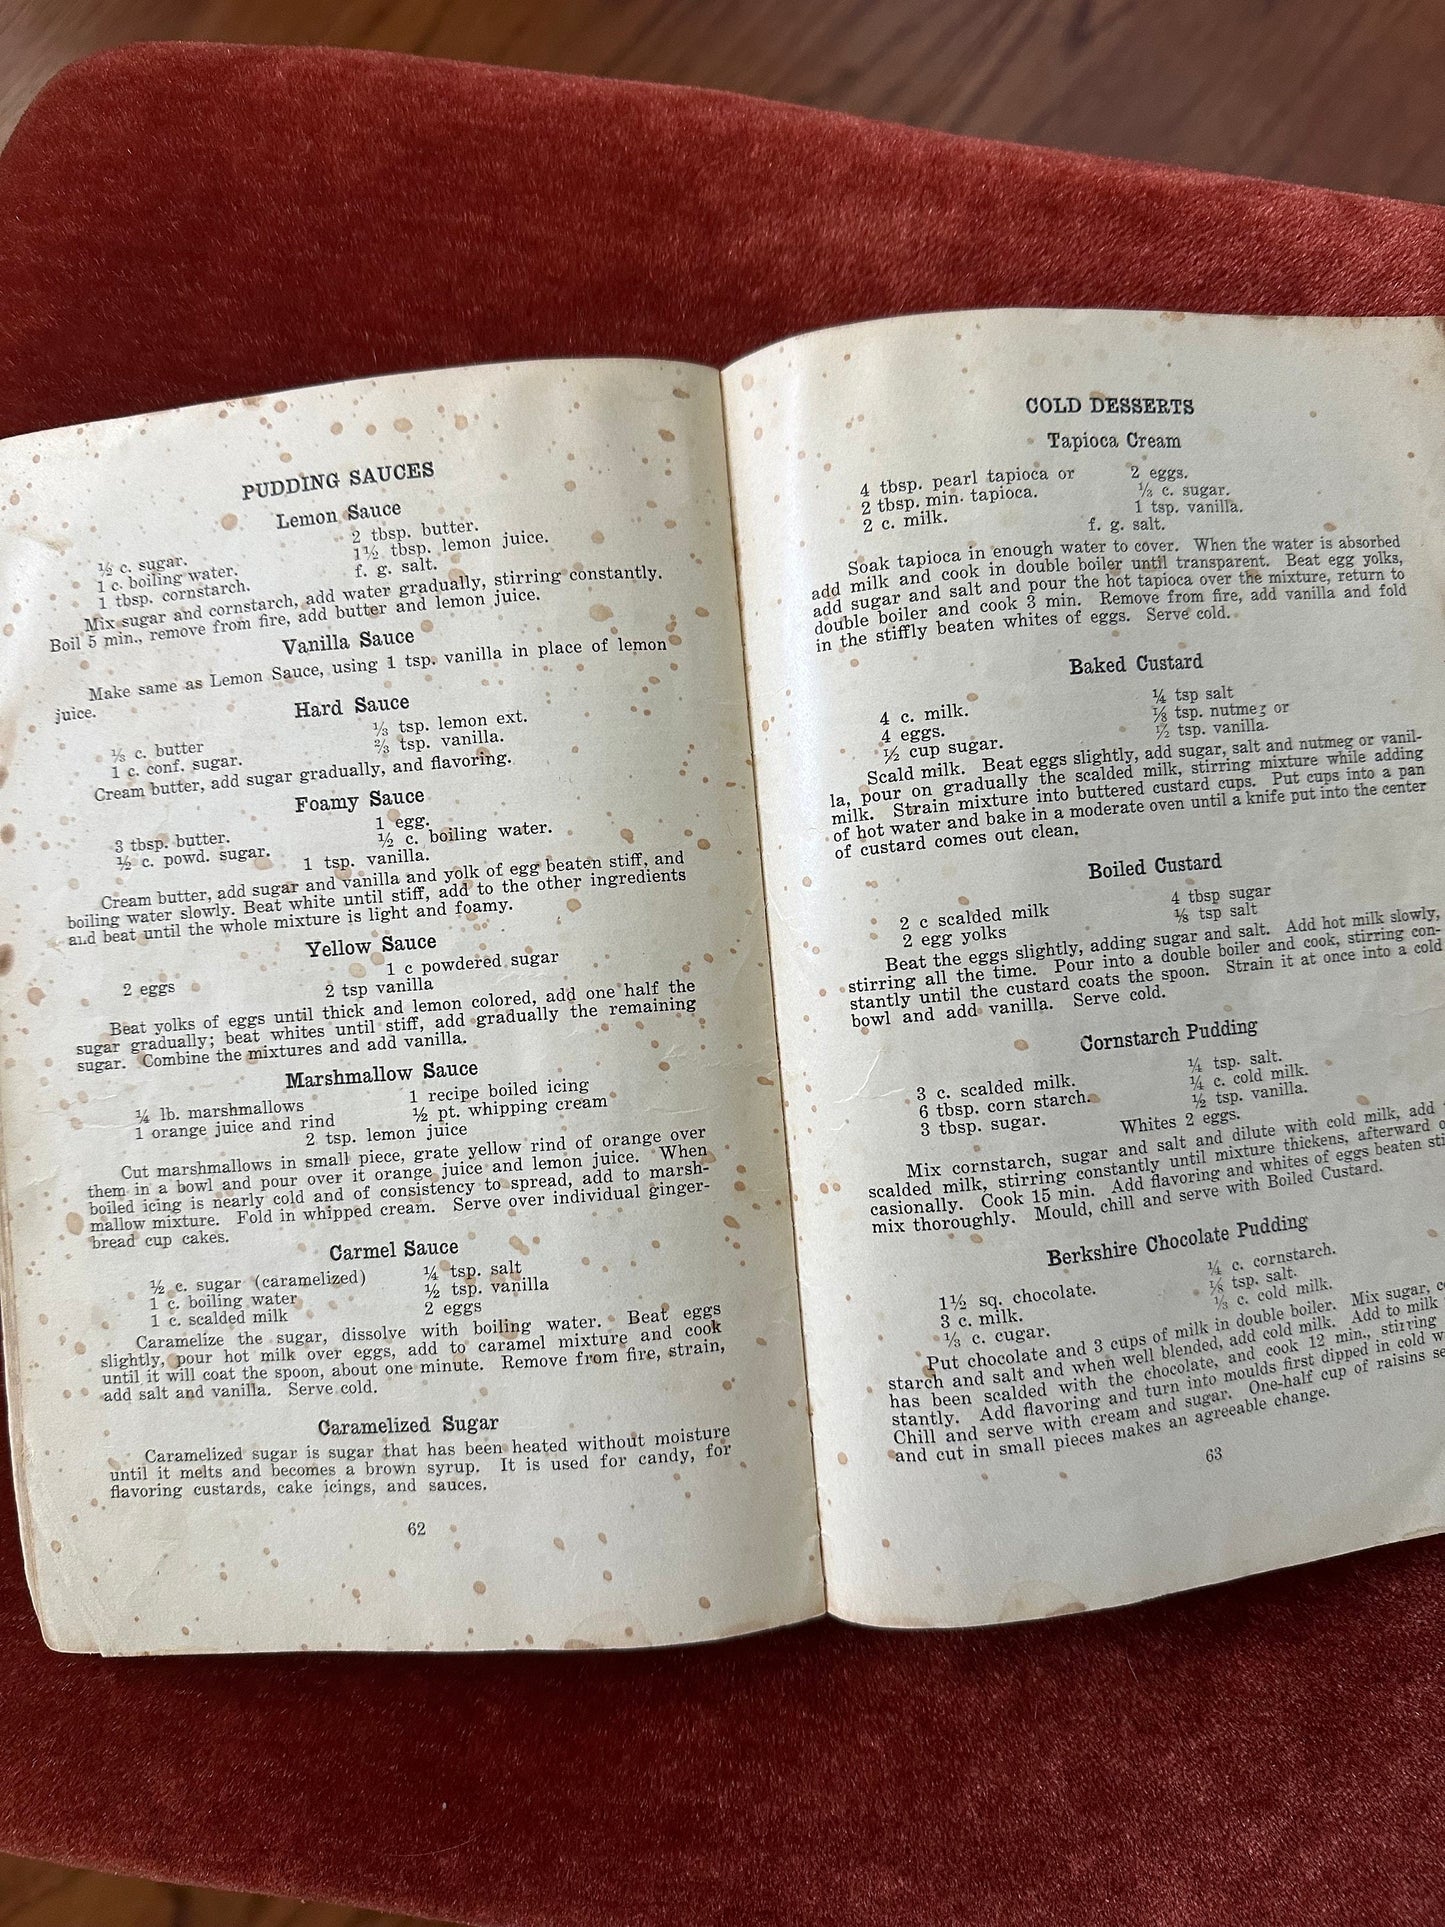 PUDDING SAUCES
Lemon Sauce
½ c. sugar.
1 c. boiling water.
1 tbsp. cornstarch.
2 tbsp. butter.
1½ tbsp. lemon juice.
f. g. salt.
Mix sugar and cornstarch, add water gradually, stirring constantly.
Boil 5 min., remove from fire, add butter and lemon juice.
Vanilla Sauce
Make same as Lemon Sauce, using 1 tsp. vanilla in place of lemon
juice.
Hard Sauce
⅓ c. butter
1 c. conf. sugar.
⅓ tsp. lemon ext.
⅔ tsp. vanilla.
Cream butter, add sugar gradually, and flavoring.
Foamy Sauce
3 tbsp. butter.
½ c. powd. sugar.
1 egg.
½ c. boiling water.
1 tsp. vanilla.
Cream butter, add sugar and vanilla and yolk of egg beaten stiff, and
boiling water slowly. Beat white until stiff, add to the other ingredients
and beat until the whole mixture is light and foamy.
Yellow Sauce
2 eggs
1 c powdered sugar
2 tsp vanilla
Beat yolks of eggs until thick and lemon colored, add one half the
sugar gradually; beat whites until stiff, add gradually the remaining
sugar. Combine the mixtures and add vanilla.
Marshmallow Sauce
¼ lb. marshmallows
1 orange juice and rind
1 recipe boiled icing
½ pt. whipping cream
2 tsp. lemon juice
Cut marshmallows in small piece, grate yellow rind of orange over
them in a bowl and pour over it orange juice and lemon juice. When
boiled icing is nearly cold and of consistency to spread, add to marsh-
mallow mixture. Fold in whipped cream. Serve over individual ginger-
bread cup cakes.
Carmel Sauce
½ c. sugar (caramelized)
1 c. boiling water
1 c. scalded milk
¼ tsp. salt
½ tsp. vanilla
2 eggs
Caramelize the sugar, dissolve with boiling water. Beat eggs
slightly, pour hot milk over eggs, add to caramel mixture and cook
until it will coat the spoon, about one minute. Remove from fire, strain,
add salt and vanilla. Serve cold.
Caramelized Sugar
Caramelized sugar is sugar that has been heated without moisture
until it melts and becomes a brown syrup. It is used for candy, for
flavoring custards, cake icings, and sauces.
62
COLD DESSERTS
Tapioca Cream
4 tbsp. pearl tapioca or
2 tbsp. min. tapioca.
2 c. milk.
2 eggs.
⅓ c. sugar.
1 tsp. vanilla.
f. g. salt.
Soak tapioca in enough water to cover. When the water is absorbed
add milk and cook in double boiler until transparent. Beat egg yolks,
add sugar and salt and pour the hot tapioca over the mixture, return to
double boiler and cook 3 min. Remove from fire, add vanilla and fold
in the stiffly beaten whites of eggs. Serve cold.
Baked Custard
4 c. milk.
4 eggs.
½ cup sugar.
¼ tsp salt
⅛ tsp. nutmeg or
½ tsp. vanilla.
Scald milk. Beat eggs slightly, add sugar, salt and nutmeg or vanil-
la, pour on gradually the scalded milk, stirring mixture while adding
milk. Strain mixture into buttered custard cups. Put cups into a pan
of hot water and bake in a moderate oven until a knife put into the center
of custard comes out clean.
Boiled Custard
2 c scalded milk
2 egg yolks
4 tbsp sugar
⅛ tsp salt
Beat the eggs slightly, adding sugar and salt. Add hot milk slowly,
stirring all the time. Pour into a double boiler and cook, stirring con-
stantly until the custard coats the spoon. Strain it at once into a cold
bowl and add vanilla. Serve cold.
Cornstarch Pudding
3 c. scalded milk.
6 tbsp. corn starch.
3 tbsp. sugar.
¼ tsp. salt.
¼ c. cold milk.
½ tsp. vanilla.
Whites 2 eggs.
Mix cornstarch, sugar and salt and dilute with cold milk, add
scalded milk, stirring constantly until mixture thickens, afterward
casionally. Cook 15 min. Add flavoring and whites of eggs beaten
mix thoroughly. Mould, chill and serve with Boiled Custard.
Berkshire Chocolate Pudding
1½ sq. chocolate.
3 c. milk.
⅓ c. cugar.
¼ c. cornstarch.
⅛ tsp. salt.
⅓ c. cold milk.
Put chocolate and 3 cups of milk in double boiler. Mix sugar,
starch and salt and when well blended, add cold milk. Add to milk
has been scalded with the chocolate, and cook 12 min., stirring
stantly. Add flavoring and turn into moulds first dipped in cold
Chill and serve with cream and sugar. One-half cup of raisins
and cut in small pieces makes an agreeable change.
63